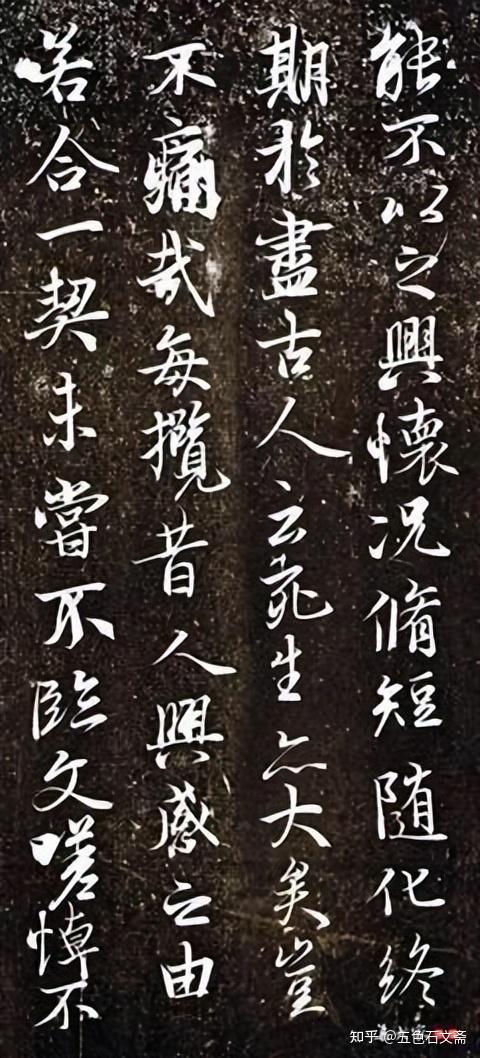 能不以之興懷况脩短随化終
期於盡古人云死生亦大矣豈
不痛哉每攬昔人興感之由
若合一契未嘗不臨文嗟悼不
知乎 @五色石文斋